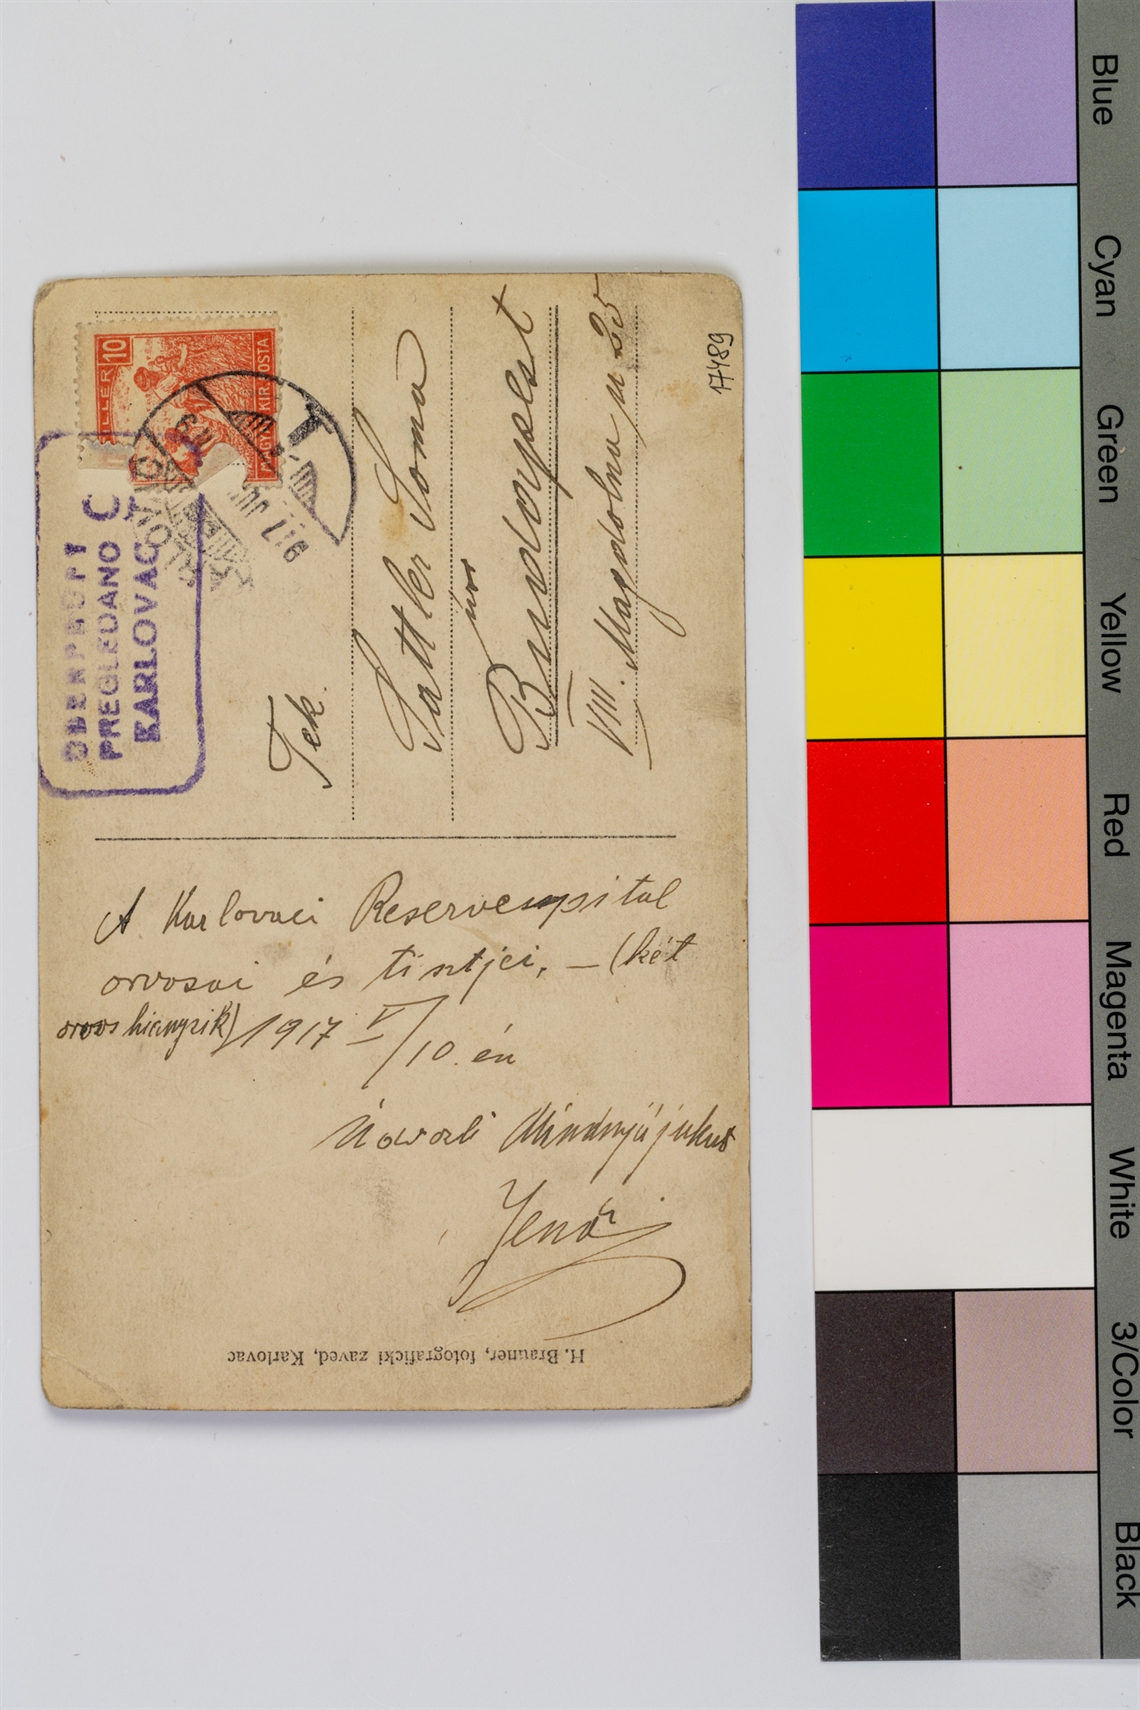 10
FILLÉR
MAGYAR KIR. POSTA
917
KARLOVAC
PREGLEDANO C
KARLOVAC
17489
Tek.
Sattler Soma
úr
Budapest
VIII. Magdolna u 25
A Karlovaci Reservespital
orvosai és tisztjei. – (két
orvos hiányzik) 1917 V/10. én
Jenő
H. Brauner, fotografički zavod, Karlovac
Blue
Cyan
Green
Yellow
Red
Magenta
White
3/Color
Black